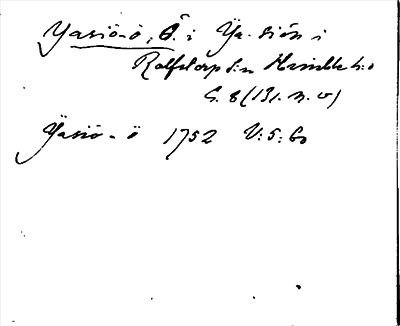 Yasiö-ö, Ö. i Ya. siön i
Rolfstorp s:n Himble h:d
G. 8 (131. n. v)
Yasiö - ö 1752 V: 5: 60